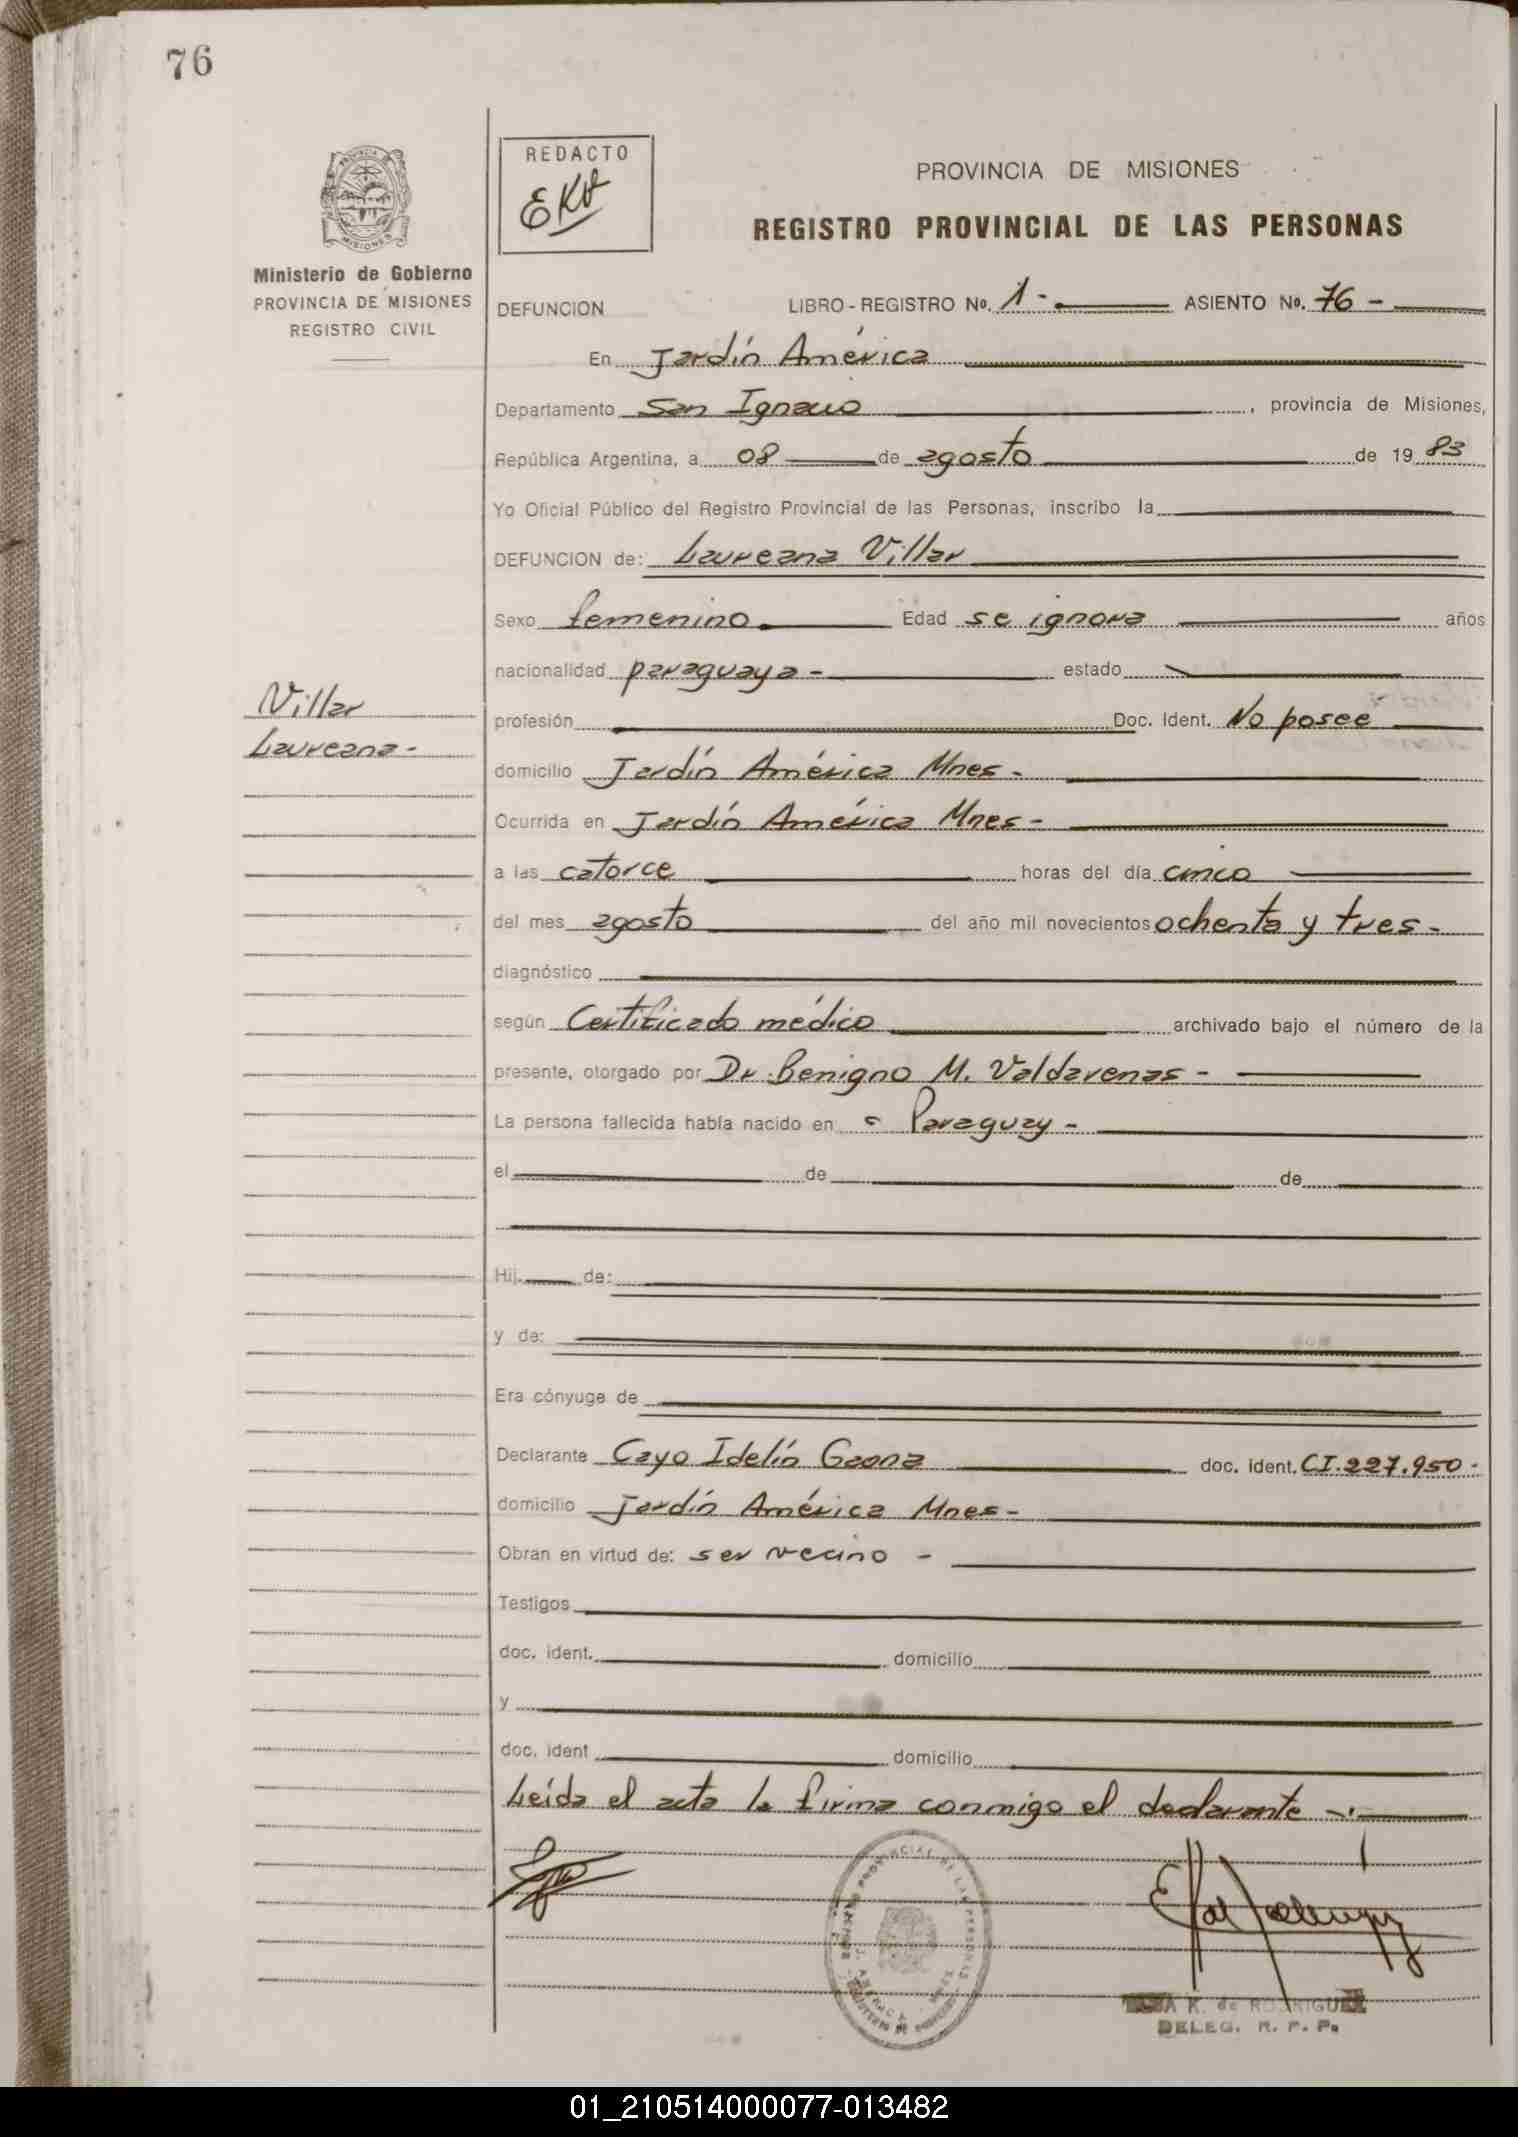 76
REDACTO
EKR
PROVINCIA DE MISIONES
REGISTRO PROVINCIAL DE LAS PERSONAS
Ministerio de Gobierno
PROVINCIA DE MISIONES
REGISTRO CIVIL
DEFUNCION LIBRO - REGISTRO No. 1 - ASIENTO No. 76 -
En Jardín América
Departamento San Ignacio, provincia de Misiones,
República Argentina, a 08 de agosto de 1983
Yo Oficial Público del Registro Provincial de las Personas, inscribo la
DEFUNCION de: Laureana Villar
Sexo femenino. Edad se ignora años
nacionalidad paraguaya - estado
Villar
profesión Doc. Ident. No posee
Laureana -
domicilio Jardín América Mnes -
Ocurrida en Jardín América Mnes -
a las catorce horas del día cinco
del mes agosto del año mil novecientos ochenta y tres -
diagnóstico
según Certificado médico archivado bajo el número de la
presente, otorgado por Dr. Benigno M. Valdarenas -
La persona fallecida había nacido en Paraguay -
el de de
Hij de:
y de:
Era cónyuge de
Declarante Cayo Idelín Gaona doc. ident. CI. 227.950 -
domicilio Jardín América Mnes -
Obran en virtud de: ser vecino -
Testigos
doc. ident. domicilio
y
doc. ident domicilio
Leída el acta la firma conmigo el declarante -
K. de RODRIGUEZ
DELEG. R. P. P.
01_210514000077-013482